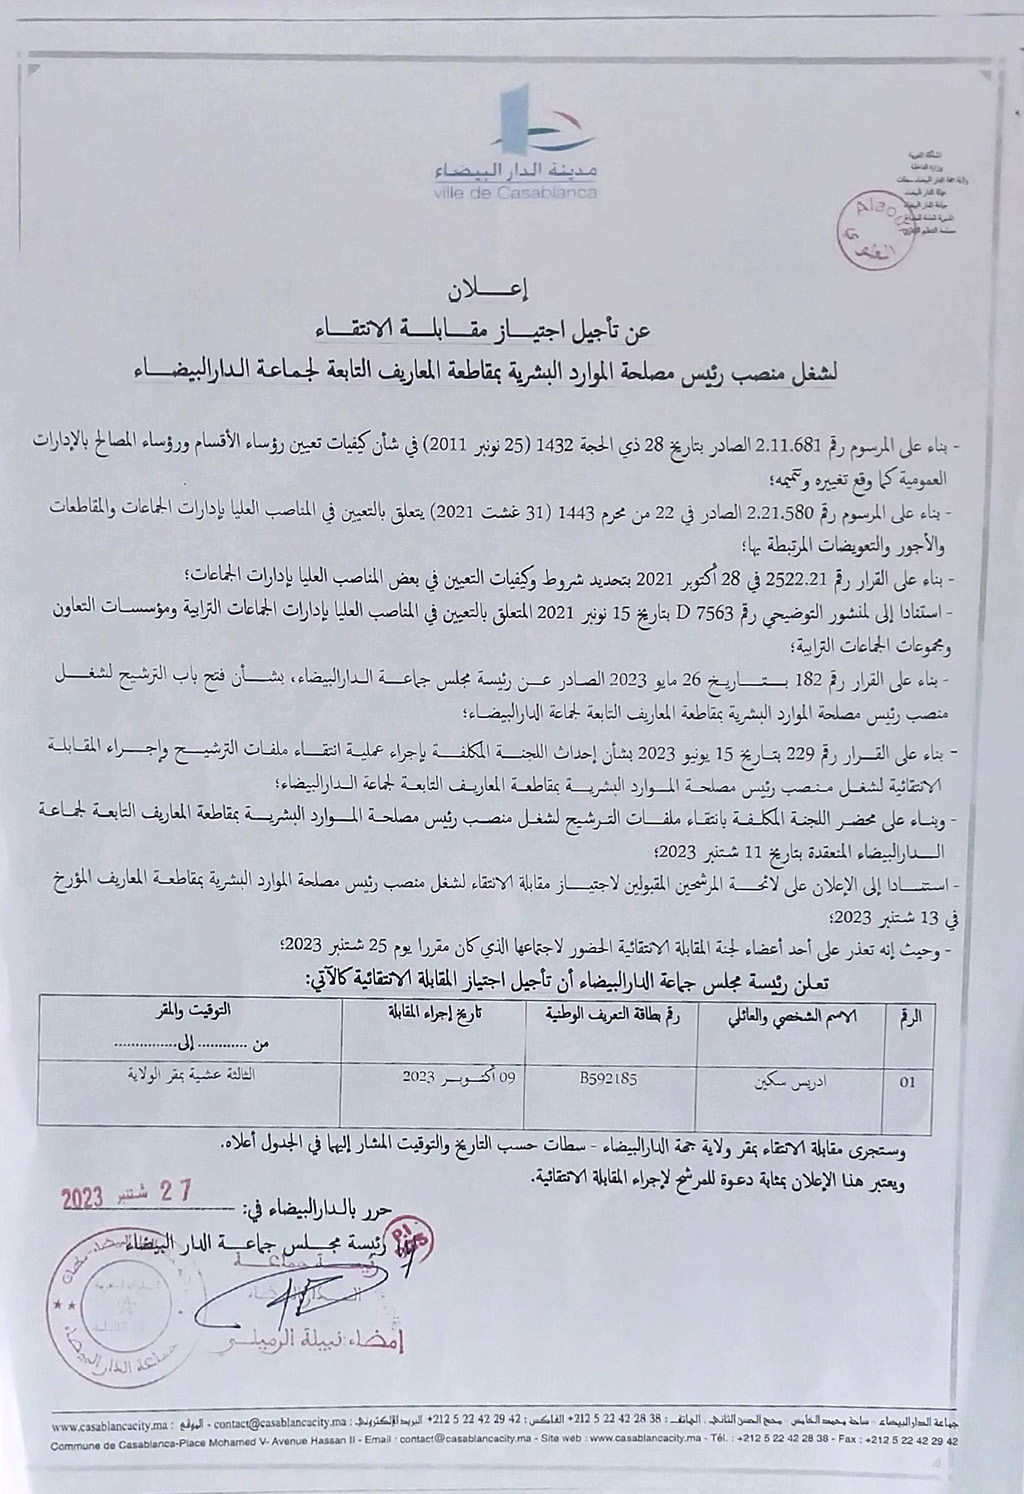 مدينة الدار البيضاء
ville de Casablanca
المملكة المغربية
وزارة الداخلية
ولاية جهة الدار البيضاء سطات
عمالة الدار البيضاء
جماعة الدار البيضاء
المديرية العامة للمصالح
Alaoui
العلوي
إعـــلان
عن تأجيل اجتيـــاز مقـــابلـــة الانتقـــاء
لشغل منصب رئيس مصلحة الموارد البشرية بمقاطعة المعاريف التابعة لجماعة الدارالبيضـــاء
- بناء على المرسوم رقم 2.11.681 الصادر بتاريخ 28 ذي الحجة 1432 (25 نونبر 2011) في شأن كيفيات تعيين رؤساء الأقسام ورؤساء المصالح بالإدارات
العمومية كما وقع تغييره وتتميمه؛
- بناء على المرسوم رقم 2.21.580 الصادر في 22 من محرم 1443 (31 غشت 2021) يتعلق بالتعيين في المناصب العليا بإدارات الجماعات والمقاطعات
والأجور والتعويضات المرتبطة بها؛
- بناء على القرار رقم 2522.21 في 28 أكتوبر 2021 بتحديد شروط وكيفيات التعيين في بعض المناصب العليا بإدارات الجماعات؛
- استنادا إلى لمنشور التوضيحي رقم D 7563 بتاريخ 15 نونبر 2021 المتعلق بالتعيين في المناصب العليا بإدارات الجماعات الترابية ومؤسسات التعاون
ومجموعات الجماعات الترابية؛
- بناء على القرار رقم 182 بتـــاريخ 26 مايو 2023 الصادر عن رئيسة مجلس جماعة الدارالبيضاء، بشأن فتح باب الترشيح لشغل
منصب رئيس مصلحة الموارد البشرية بمقاطعة المعاريف التابعة لجماعة الدارالبيضاء؛
- بناء على القـرار رقم 229 بتاريخ 15 يونيو 2023 بشأن إحداث اللجنة المكلفة بإجراء عملية انتقاء ملفات الترشيح وإجراء المقابلة
الانتقائية لشغل منصب رئيس مصلحة الموارد البشرية بمقاطعة المعاريف التابعة لجماعة الدارالبيضاء؛
- وبناء على محضر اللجنة المكلفة بانتقاء ملفات الترشيح لشغل منصب رئيس مصلحة الموارد البشرية بمقاطعة المعاريف التابعة لجماعة
الدارالبيضاء المنعقدة بتاريخ 11 شتنبر 2023؛
- استنـــادا إلى الإعلان على لائحة المرشحين المقبولين لاجتياز مقابلة الانتقاء لشغل منصب رئيس مصلحة الموارد البشرية بمقاطعة المعاريف المؤرخ
في 13 شتنبر 2023؛
- وحيث إنه تعذر على أحد أعضاء لجنة المقابلة الانتقائية الحضور لاجتماعها الذي كان مقررا يوم 25 شتنبر 2023؛
تعلن رئيسة مجلس جماعة الدارالبيضاء أن تأجيل اجتياز المقابلة الانتقائية كالآتي:
الرقم الاسم الشخصي والعائلي رقم بطاقة التعريف الوطنية تاريخ إجراء المقابلة التوقيت والمقر
من ............ إلى...............
01 ادريس سكين B592185 09 أكتوبر 2023 الثالثة عشية بمقر الولاية
وستجرى مقابلة الانتقاء بمقر ولاية جهة الدارالبيضاء - سطات حسب التاريخ والتوقيت المشار إليها في الجدول أعلاه.
ويعتبر هذا الإعلان بمثابة دعوة للمرشح لإجراء المقابلة الانتقائية.
حرر بالدارالبيضاء في: 27 شتنبر 2023
رئيسة مجلس جماعـة الدار البيضاء
رئيسة جماعة
الدار البيضاء
إمضاء: نبيلة الرميلي
جماعة الدار البيضاء
جماعة الدارالبيضاء - ساحة محمد الخامس - محج الحسن الثاني . الهاتف : 38 28 42 22 5 212+ الفاكس : 42 29 42 22 5 212+ البريد الإلكتروني : contact@casablancacity.ma - الموقع : www.casablancacity.ma
Commune de Casablanca-Place Mohamed V- Avenue Hassan II - Email : contact@casablancacity.ma - Site web : www.casablancacity.ma - Tél. : +212 5 22 42 28 38 - Fax : +212 5 22 42 29 42